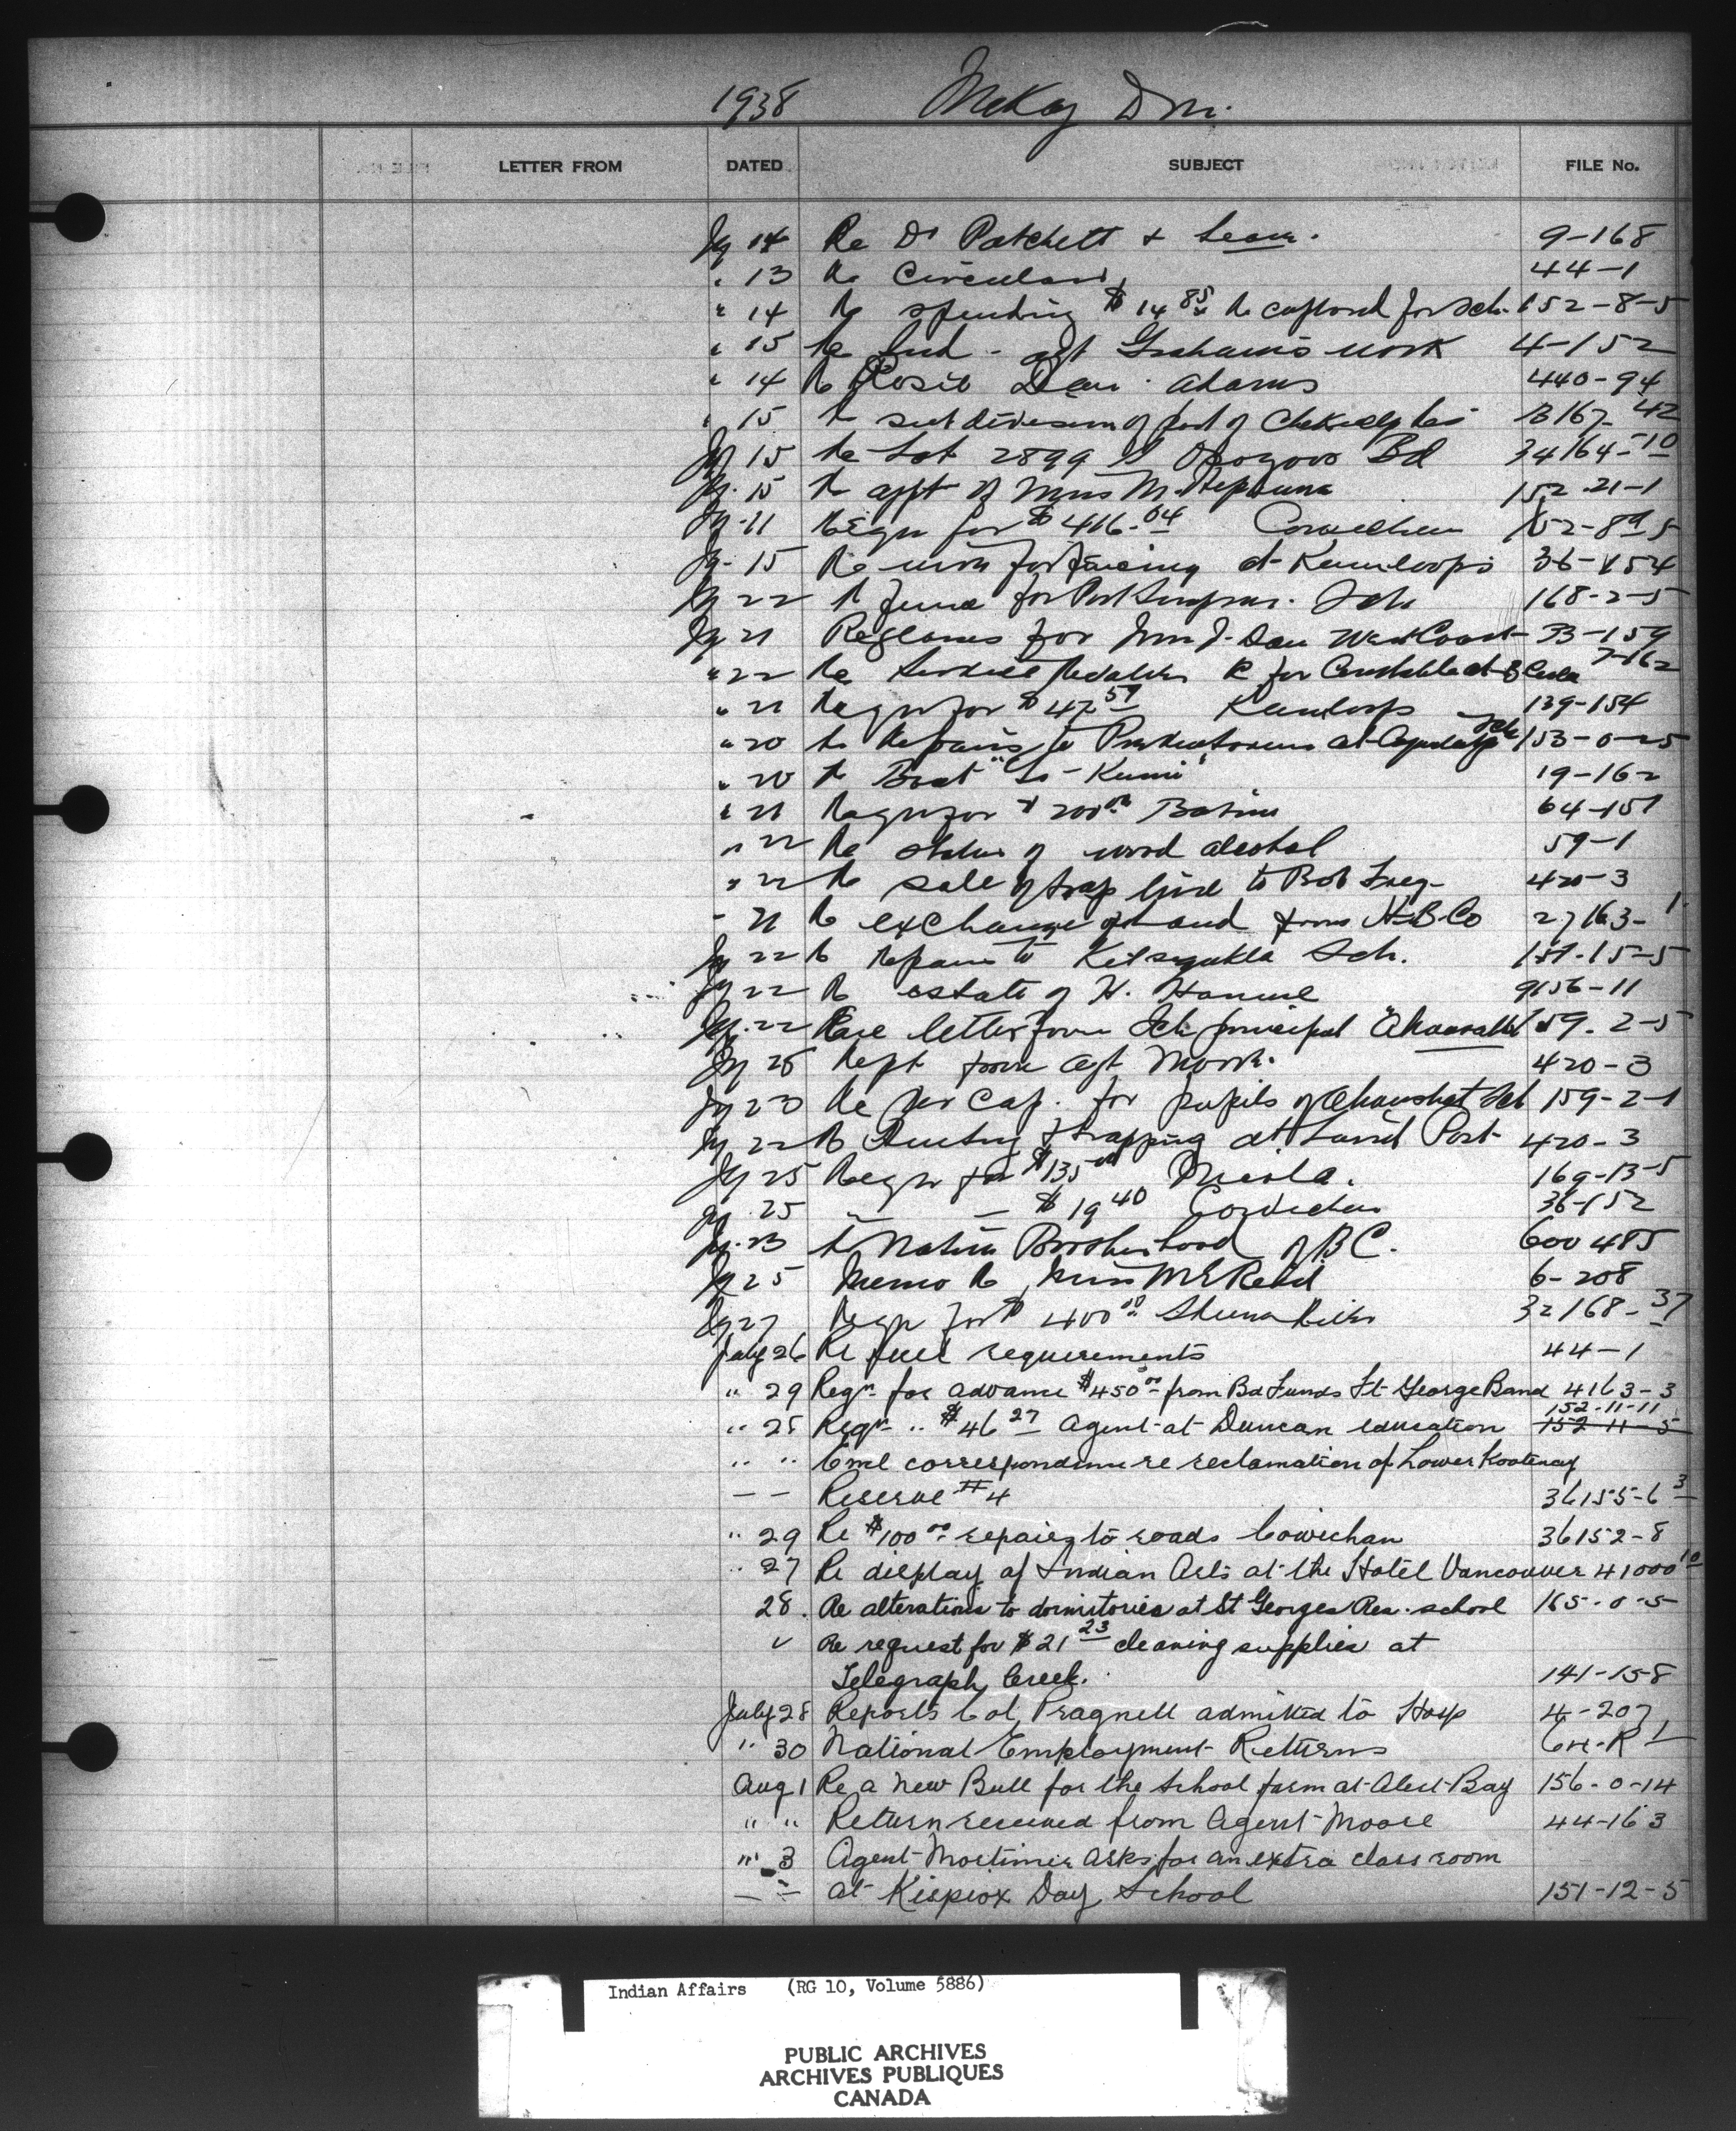 1938 McKay D M.
LETTER FROM DATED SUBJECT FILE No.
Jy 14 Re Dr Patchett & leave. 9-168
" 13 Re Circulars 44-1
" 14 Re spending $14 85 Re cupboard for Sch. 152-8-5
" 15 Re Ind. agt Graham's work 4-152
" 14 Re Rosie Dan Adams 440-94
" 15 Re subdivision of part of 167-42
Jy 15 Re Lot 2899 Osoyoos Bd 34164-10
Jy 15 Re appt of Miss M. 152-21-1
Jy 11 Reqn for $416.04 Cowichan 152-8-5
Jy 15 Re wire for fencing at Kamloops 36-154
Jy 22 Re fence for Port Simpson Sch 168-2-5
Jy 21 Re glasses for Mrs J. Dan West Coast 33-159
" 22 Re Service Revolver for Constable at B Coola 7-162
" 21 Reqn for $47 59 Kamloops 139-154
" 20 Re Repairs to at Sch 153-0-25
" 20 Re Boat 19-162
" 21 Reqn for $200 00 Babine 64-151
" 22 Re status of wood alcohol 59-1
" 22 Re sale of trap line to Bob 420-3
" 21 Re exchange of land from H.B.Co 27163-1
Jy 22 Re repairs to Kitsegukla Sch. 151-15-5
Jy 22 Re estate of H. 9156-11
Jy 22 letter from Sch principal Ahousaht 159-2-5
Jy 25 Rept from agt 420-3
Jy 23 Re Per Cap. for pupils of Ahousaht Sch 159-2-1
Jy 22 Re Hunting & trapping at Laird Post 420-3
Jy 25 Reqn for $135 00 Nicola. 169-13-5
Jy 25 " — $19 40 Cowichan 36-152
Jy 23 Re Native Brotherhood of B C. 600 485
Jy 25 Memo Re Miss M E Reid 6-208
Jy 27 Reqn for $400 00 Skeena River 32168-37
July 26 Re fuel requirements 44-1
" 29 Reqn for advance $450 00 from Bd Funds Ft George Band 4163-3
152-11-11
" 25 Reqn " $46 27 Agent at Duncan education 152-11-5
" " Encl correspondence re reclamation of Lower Kootenay
— — Reserve #4 36155-6 3
" 29 Re $100 00 repairs to roads Cowichan 36152-8
" 27 Re display of Indian Arts at the Hotel Vancouver 41000 10
28. Re alterations to dormitories at St Georges Res. school 165-0-5
" Re request for $21 23 cleaning supplies at
Telegraph Creek. 141-15-8
July 28 Reports Col. Pragnell admitted to Hosp 4-207
" 30 National Employment Returns
Aug 1 Re a new Bull for the School farm at Alert Bay 156-0-14
" " Return received from Agent Moore 44-163
" 3 Agent Mortimer asks for an extra class room
— " at Kispiox Day School 151-12-5
Indian Affairs (RG 10, Volume 5886)
PUBLIC ARCHIVES
ARCHIVES PUBLIQUES
CANADA